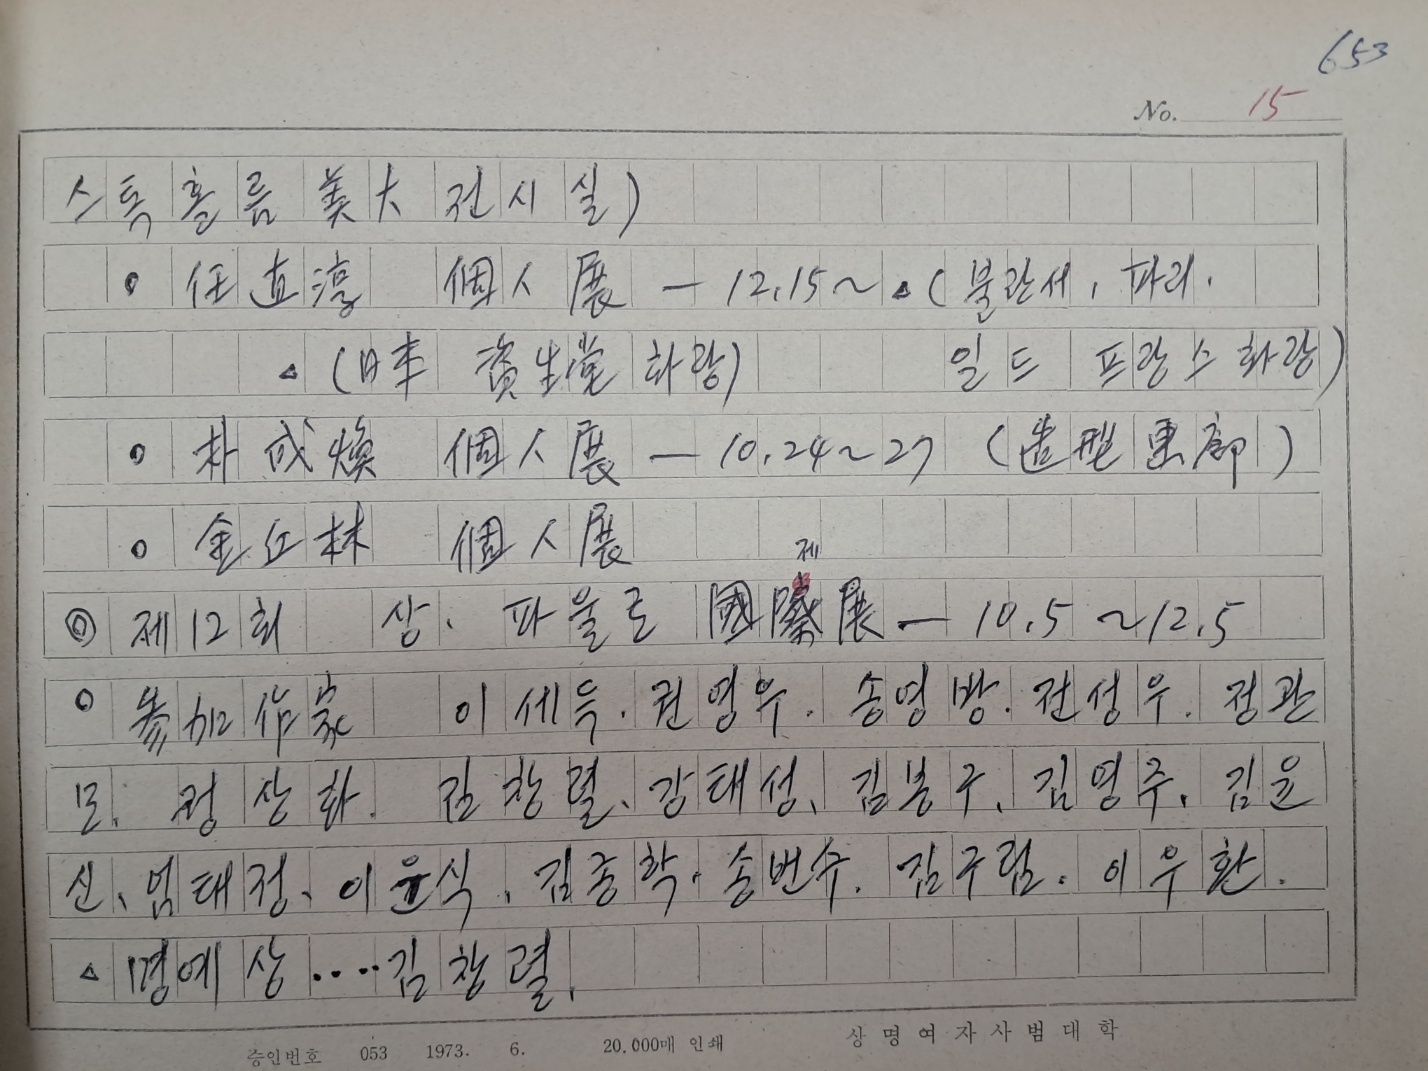 653
No. 15
스톡홀름 美大 전시실)
• 任直淳 個人展 — 12.15~ ▵(불란서, 파리.
▵(日本 資生堂 화랑) 일드 프랑스 화랑)
• 朴成煥 個人展 — 10.24~27 (造型畫廊)
• 金丘林 個人展
제
◎ 제12회 상. 파울로 國際展 — 10.5 ~12.5
• 參加作家 이세득. 권영우. 송영방. 전성우. 정관
모. 정상화. 김창렬、강태성、김봉구、김영주、김윤
신、엄태정、이윤식、김종학. 송번수. 김구림. 이우환.
▵ 명예상····김창렬、
승인번호 053 1973. 6. 20.000매 인쇄 상명여자사범대학